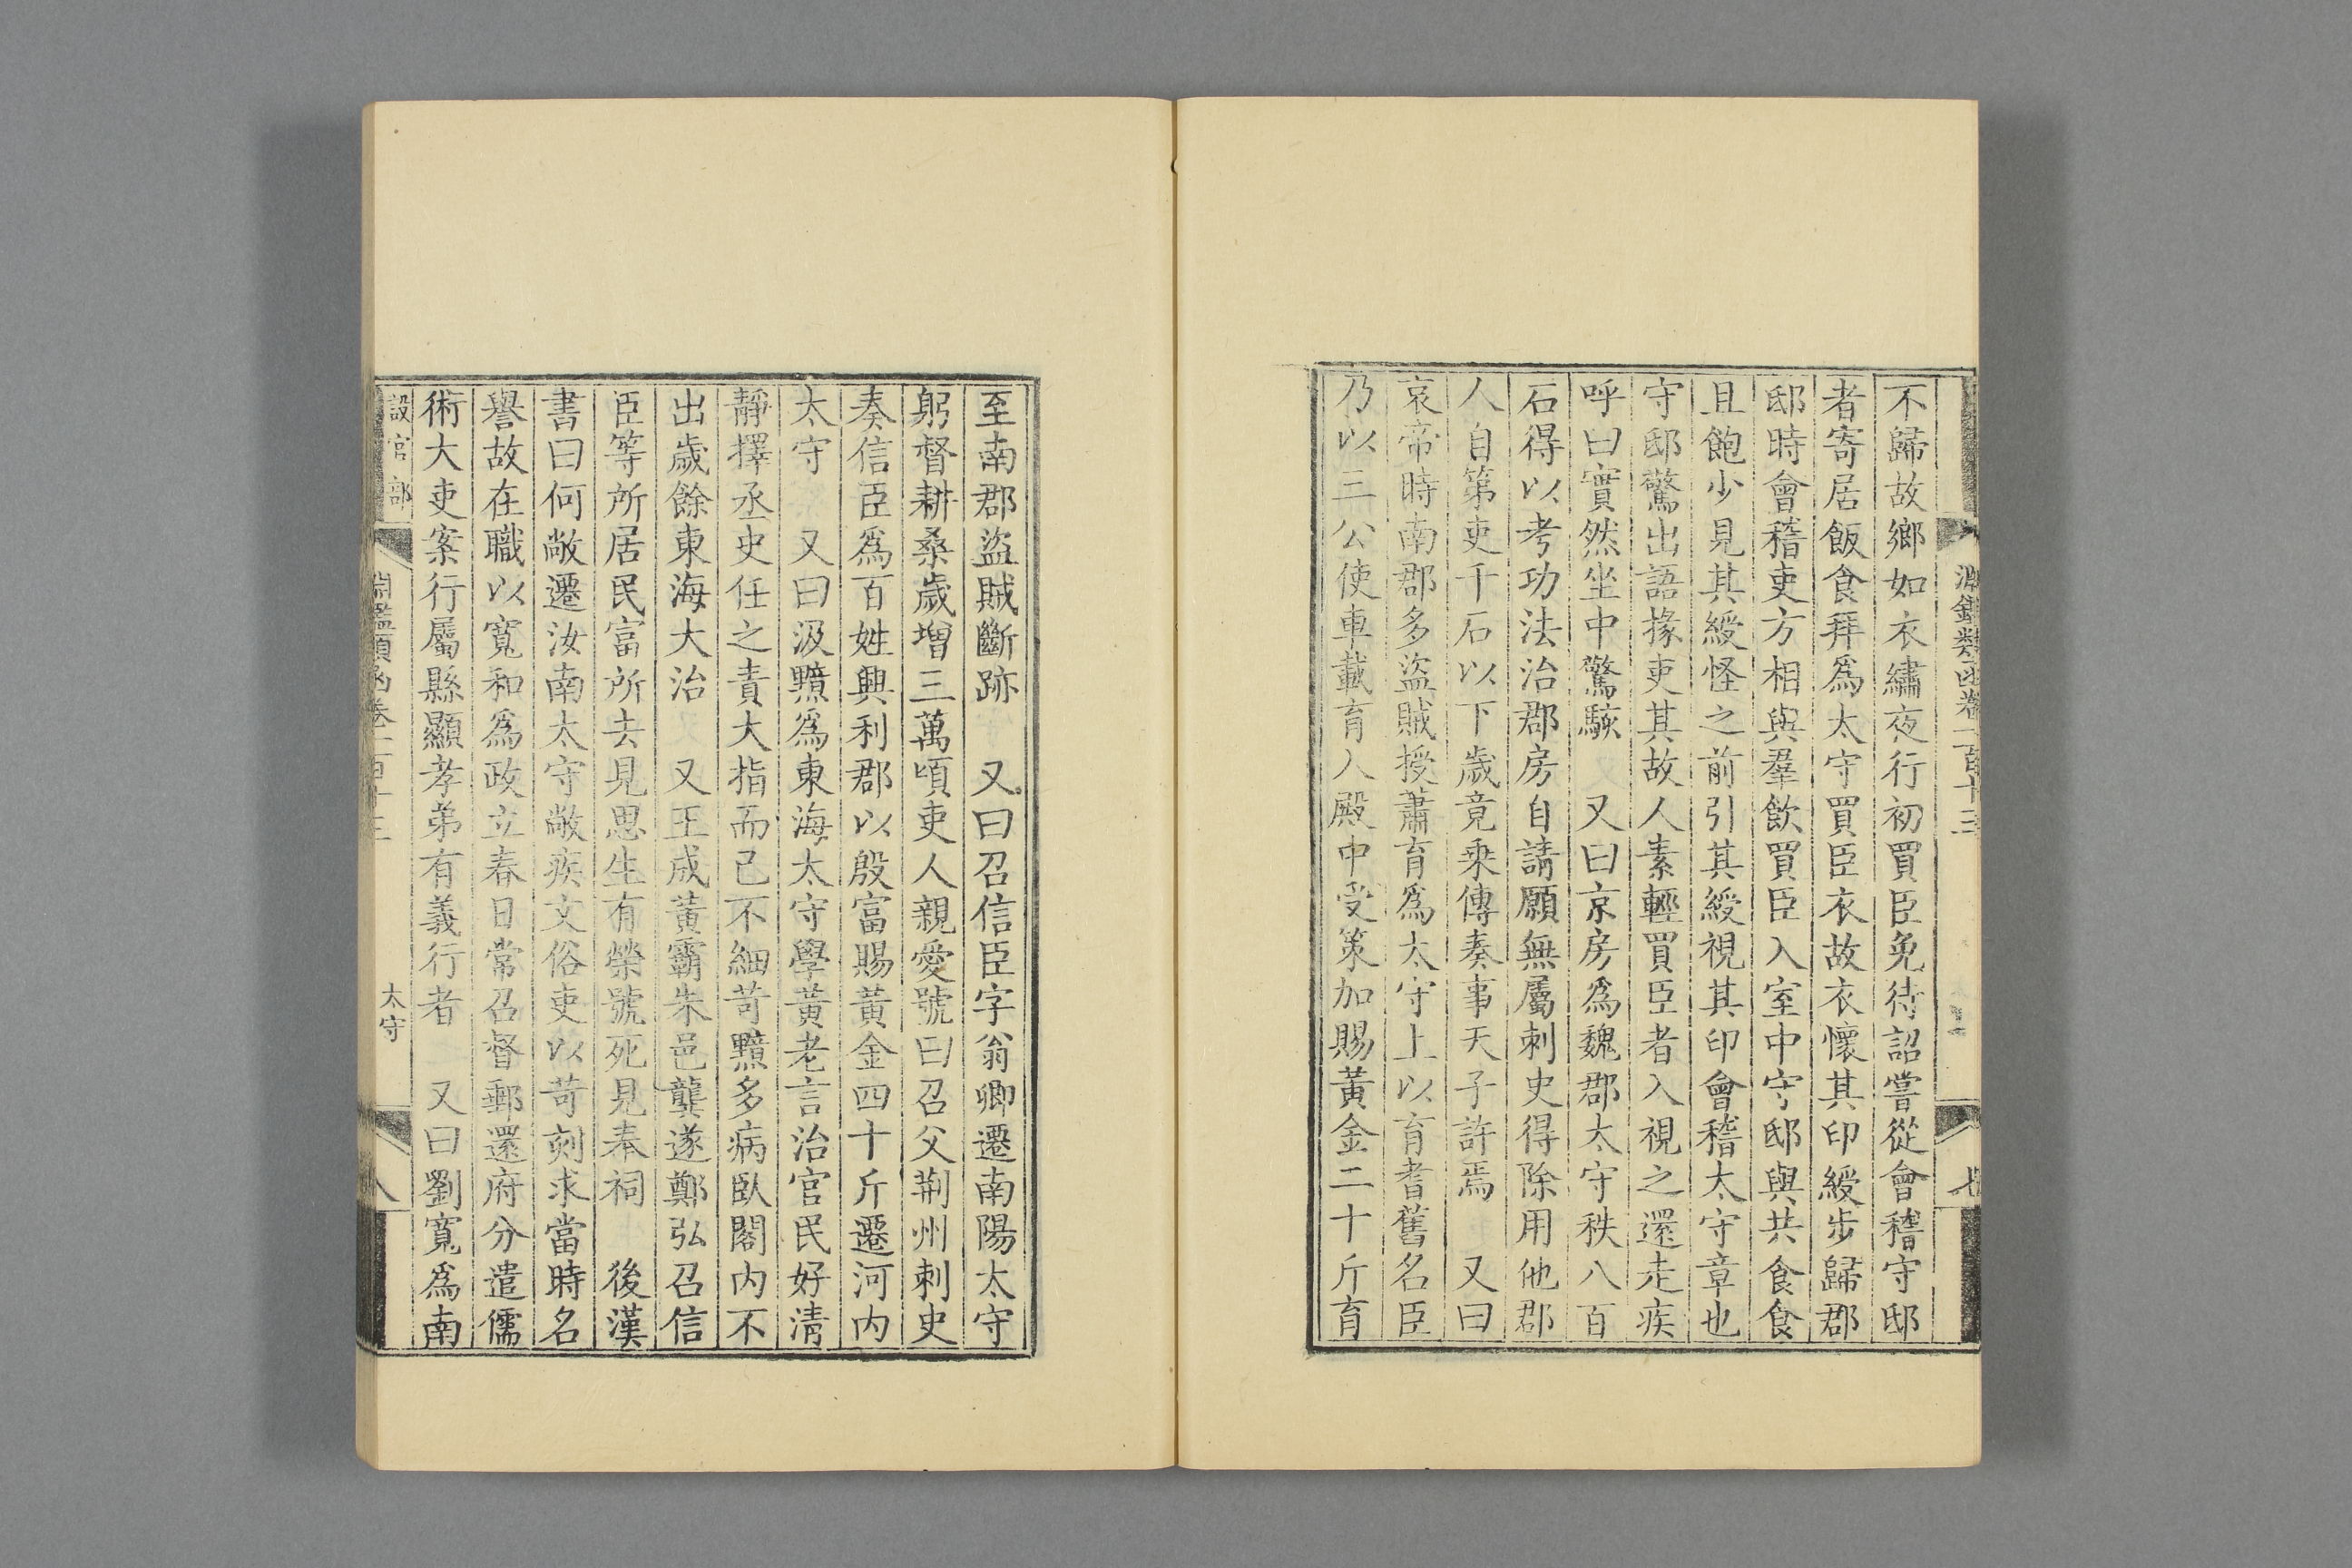 淵鑑類函卷一百十三
不歸故鄉如衣繡夜行初買臣免待詔嘗從會稽守邸
者寄居飯食拜爲太守買臣衣故衣懷其印綬步歸郡
邸時會稽吏方相與羣飲買臣入室中守邸與共食食
且飽少見其綬怪之前引其綬視其印會稽太守章也
守邸驚出語掾吏其故人素輕買臣者入視之還走疾
呼曰實然坐中驚駭　又曰京房爲魏郡太守秩八百
石得以考功法治郡房自請願無屬刺史得除用他郡
人自第吏千石以下歲竟乘傳奏事天子許焉　又曰
哀帝時南郡多盜賊授蕭育爲太守上以育耆舊名臣
乃以三公使車載育入殿中受策加賜黃金二十斤育
至南郡盜賊斷跡　又曰召信臣字翁卿遷南陽太守
躬督耕桑歲增三萬頃吏人親愛號曰召父荆州刺史
奏信臣爲百姓興利郡以殷富賜黃金四十斤遷河內
太守　又曰汲黯爲東海太守學黃老言治官民好清
靜擇丞史任之責大指而已不細苛黯多病臥閣內不
出歲餘東海大治　又王成黃霸朱邑龔遂鄭弘召信
臣等所居民富所去見思生有榮號死見奉祠　後漢
書曰何敞遷汝南太守敞疾文俗吏以苛刻求當時名
譽故在職以寬和爲政立春日常召督郵還府分遣儒
術大吏案行屬縣顯孝弟有義行者　又曰劉寬爲南
設官部　淵鑑類函卷一百十三　太守　八